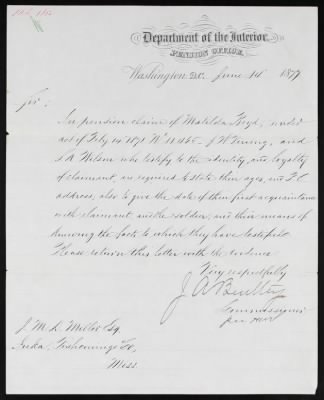 Department of the Interior,
PENSION OFFICE,
Washington, D.C. June 14" 1877
Sir:
In pension claim of Matilda Floyd, under
act of Feby 14 1871 No 11465. J W Irving, and
S A Wilson who testify to the identity, and loyalty
of claimant, are required to state their ages, and P.O.
address, also to give the date of their first acquaintance
with claimant, and the soldier, and their means of
knowing the facts to which they have testified.
Please return this letter with the evidence
Very respectfully
J A Bentley
Commissioner
J. M. L. Miller Esq
Iuka, Tishomingo Co,
Miss.